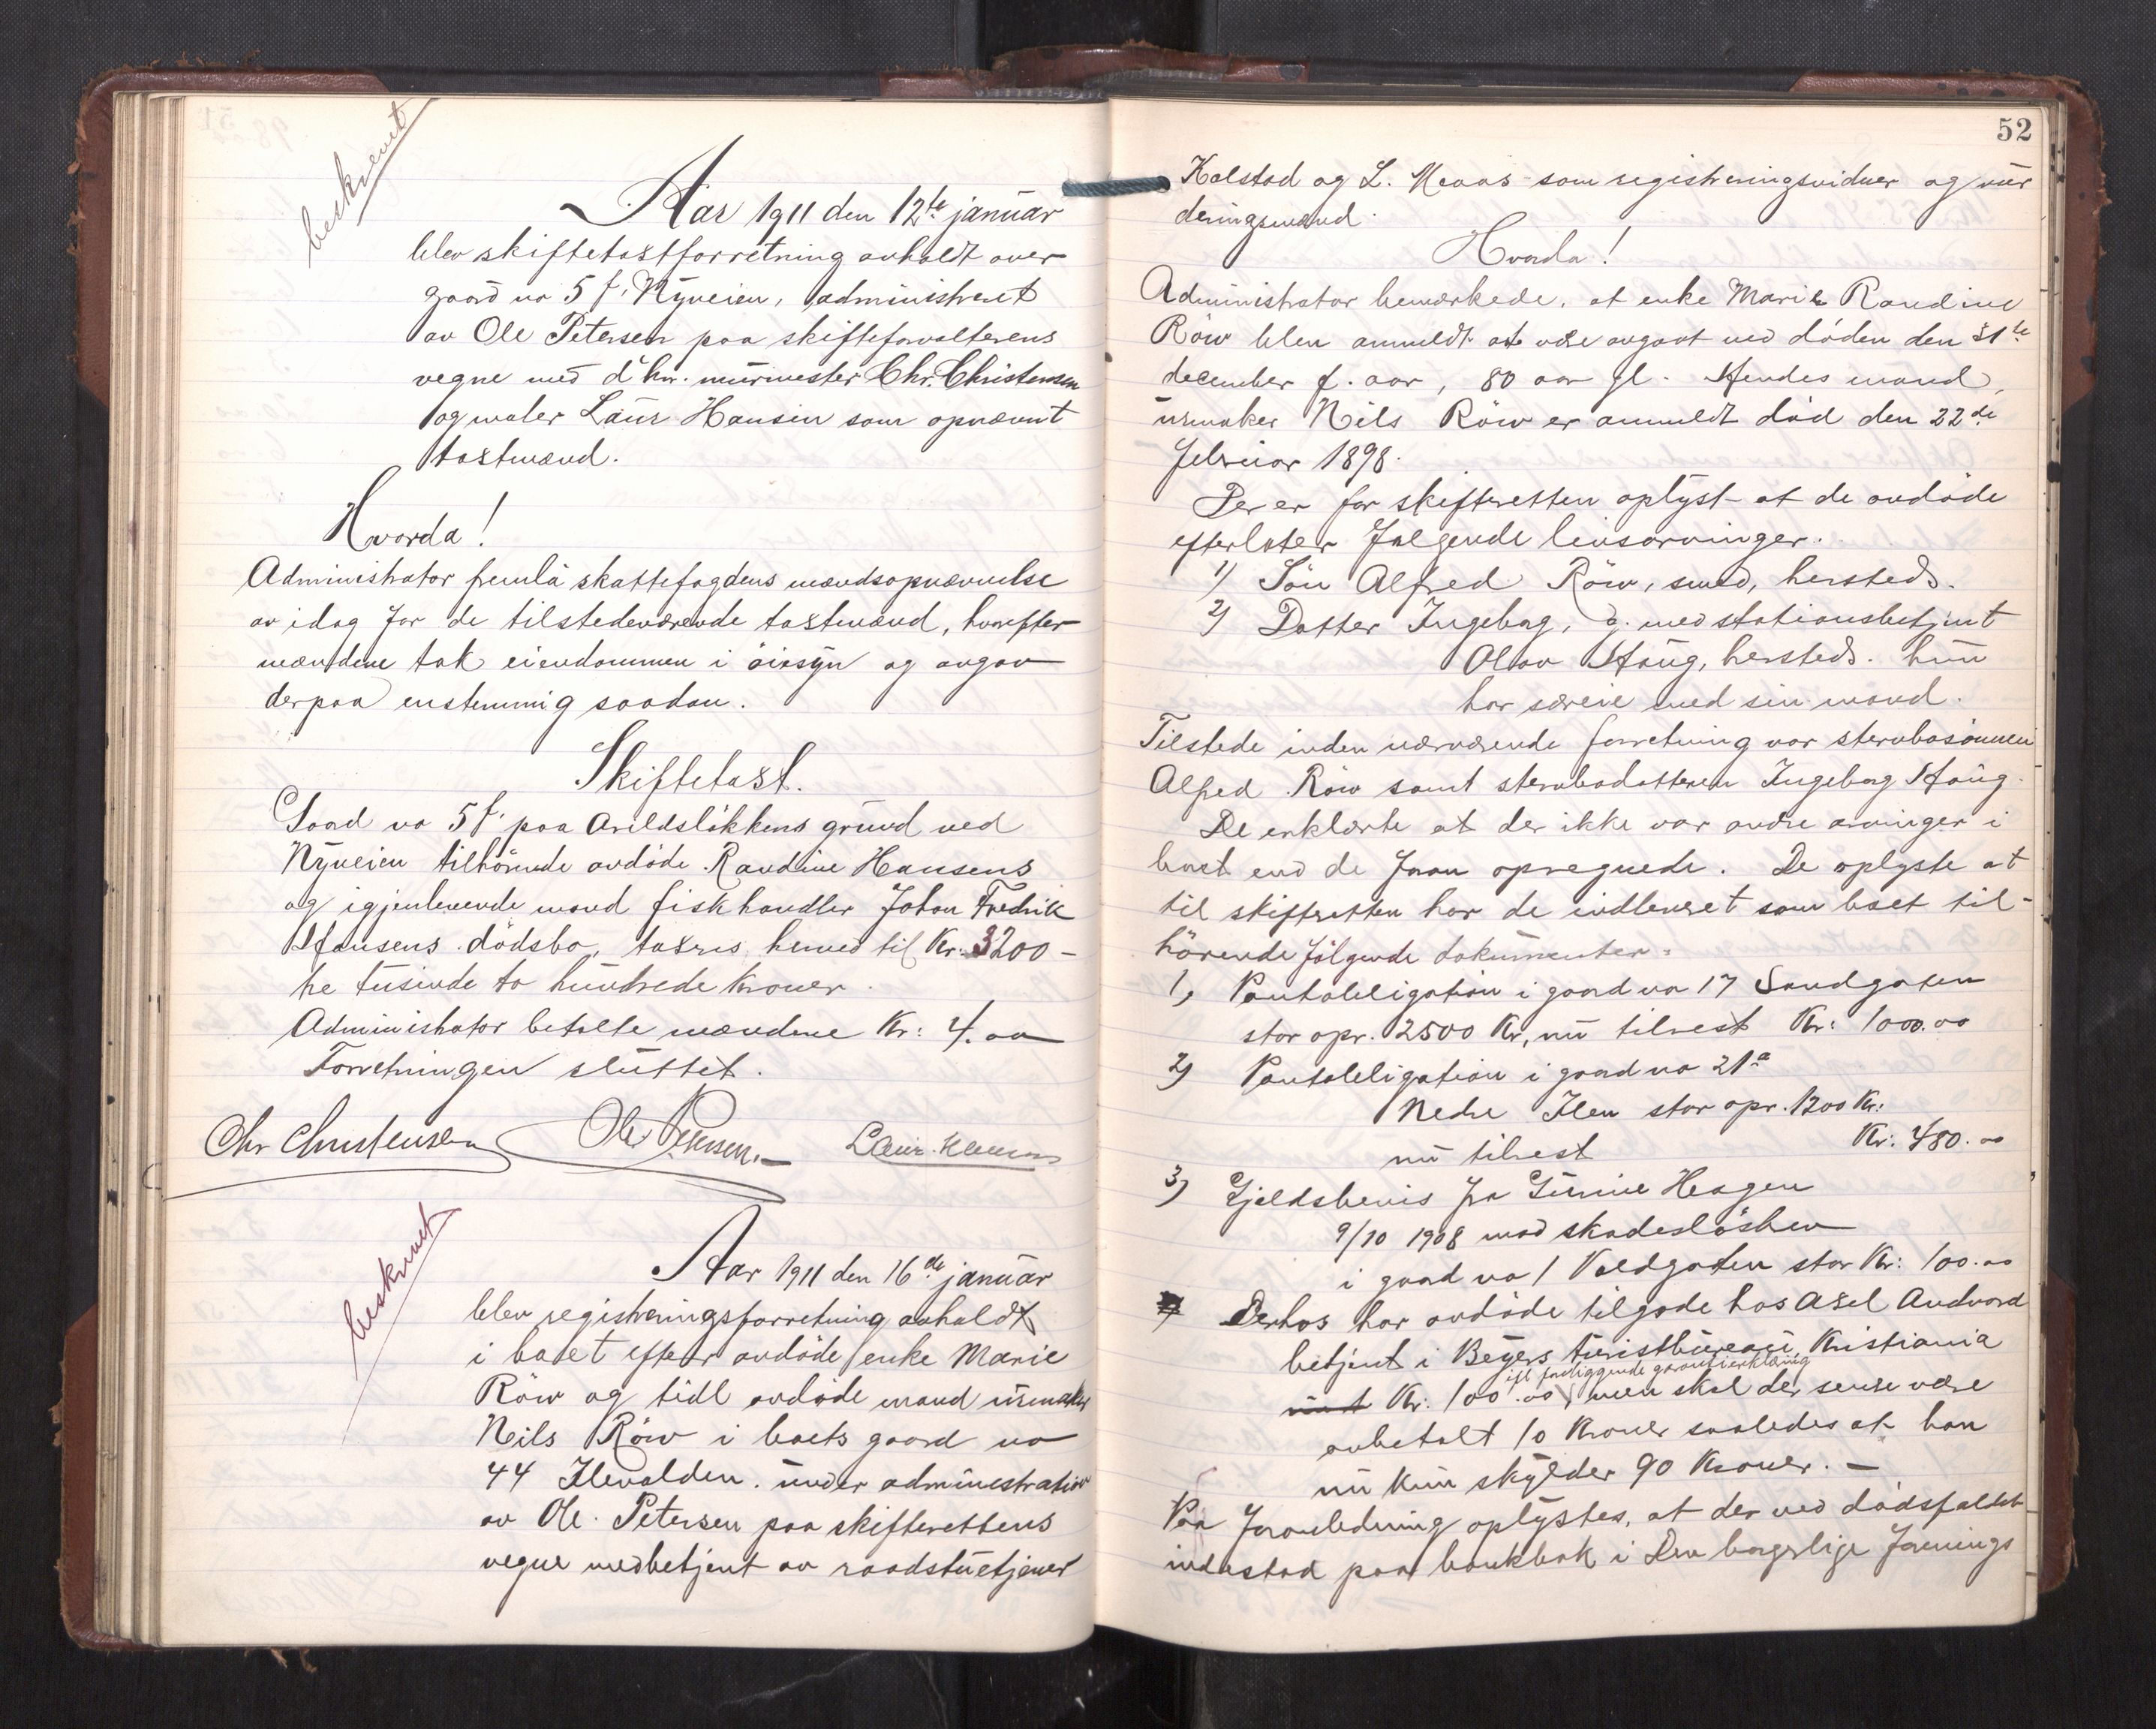 beskrevet
Aar 1911 den 12te januar
blev skiftetakstforretning avholdt over
gaard no 5 f. Nyveien, administreret
av Ole Petersen paa skifteforvalterens
vegne med d'hrr. murmester Chr. Christensen
og maler Laur Hansen som opnævnt
takstmænd.
Hvorda!
Administrator fremla skattefogdens mændsopnævnelse
av idag for de tilstedeværende takstmænd, hvorefter
mændene tok eiendommen i øiesyn og avgav
derpaa enstemmig saadan.
Skiftetakst.
Gaard no 5 f. paa Arildsløkkens grund ved
Nyveien tilhørende avdøde Randine Hansens
og igjenlevende mand fiskhandler Johan Fredrik
Hansens dødsbo, takseres herved til Kr: 3200 -
tre tusinde to hundrede kroner.
Administrator betalte mændene Kr: 4.00
Forretningen sluttet.
Chr Christensen Ole Petersen. Laur. Hansen
beskrevet
Aar 1911 den 16de januar
blev registreringsforretning avholdt
i boet efter avdøde enke Marie
Röw og tidl avdøde mand urmaker
Nils Röw i boets gaard no
44 Ilevolden under administration
av Ole Petersen paa skifterettens
vegne medbetjent av raadstuetjener
52
Kolstad og L. Moaas som registreringsvidner og vur
deringsmænd.
Hvorda!
Administrator bemærkede, at enke Marie Randine
Röw blev anmeldt at være avgaat ved døden den 31te
december f. aar, 80 aar gl. Hendes mand,
urmaker Nils Röw er anmeldt død den 22de
februar 1898.
Der er for skifteretten oplyst at de avdøde
efterlater følgende livsarvinger.
1) Søn Alfred Röw, smed, hersteds.
2) Datter Ingeborg, g. med stationsbetjent
Olav Haug, hersteds. hun
har særeie med sin mand.
Tilstede inden nærværende forretning var stervbosønnen
Alfred Röw samt stervbodatteren Ingeborg Haug.
De erklærte at der ikke var andre arvinger i
boet end de foran opregnede. De oplyste at
til skifteretten har de indleveret som boet til-
hørende følgende dokumenter:
1, Pantobligation i gaard no 17 Sandgaten
stor opr. 2500 Kr, nu tilrest Kr: 1000.00
2) Pantobligation i gaard no 21a
Nedre Ilen stor opr. 1200 Kr:
nu tilrest Kr: 480.00
3) Gjeldsbevis fra Gurine Hagen
9/10 1908 mod skadesløsbrev
i gaard no 1 Voldgaten stor Kr: 100.00
Derhos har avdøde tilgode hos Axel Andvord
betjent i Beyers turistbureau, Kristiania
ifl foreliggende garantierklæring
Kr: 100.00 men skal der senere være
avbetalt 10 Kroner saaledes at han
nu kun skylder 90 Kroner. -
Paa foranledning oplystes, at der ved dødsfaldet
indestod paa bankbok i Den borgerlige Forenings